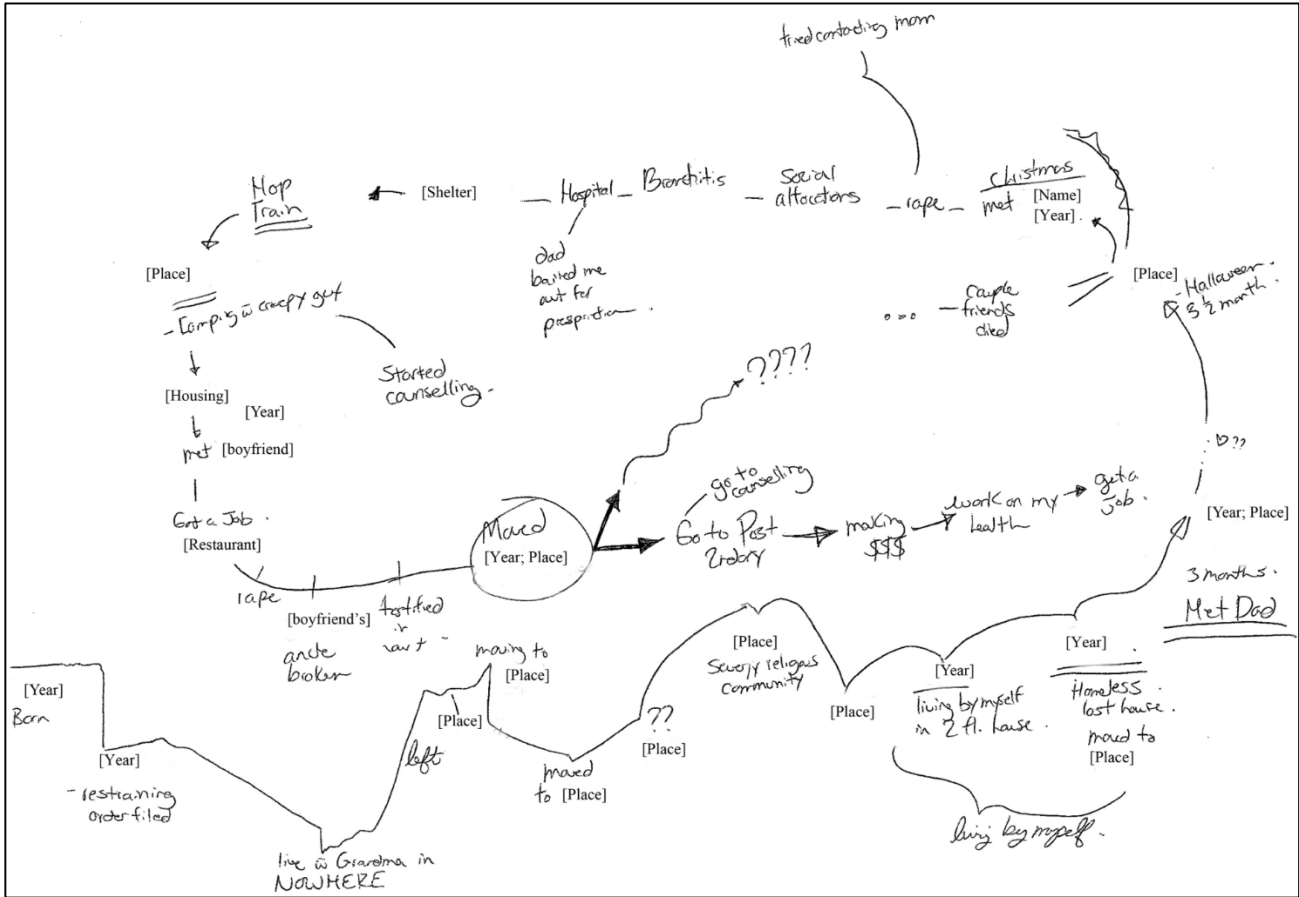 tried contacting mom
Hop
Train
[Shelter]
Hospital
Bronchitis
Social
altocations
rape
Christmas
met
[Name]
[Year].
dad
bailed me
out for
[Place]
- Camping w̄ creepy guy
Started
counselling -
... - couple
friends
died
[Place]
- Halloween.
3 ½ month.
????
[Housing]
[Year]
met [boyfriend]
Got a Job.
[Restaurant]
rape
[boyfriend's]
uncle
broker
testified
in
court -
Moved
[Year; Place]
go to
counselling
Go to Post
2ndary
making
$$$
work on my
health
get a
Job.
??
[Year; Place]
3 months.
Met Dad
[Year]
Born
[Year]
- restraining
order filed
live w̄ Grandma in
NOWHERE
left
[Place]
moving to
[Place]
moved
to [Place]
??
[Place]
[Place]
religious
community
[Place]
[Year]
living by myself
in 2 fl. house.
[Year]
Homeless.
lost house.
moved to
[Place]
living by myself.